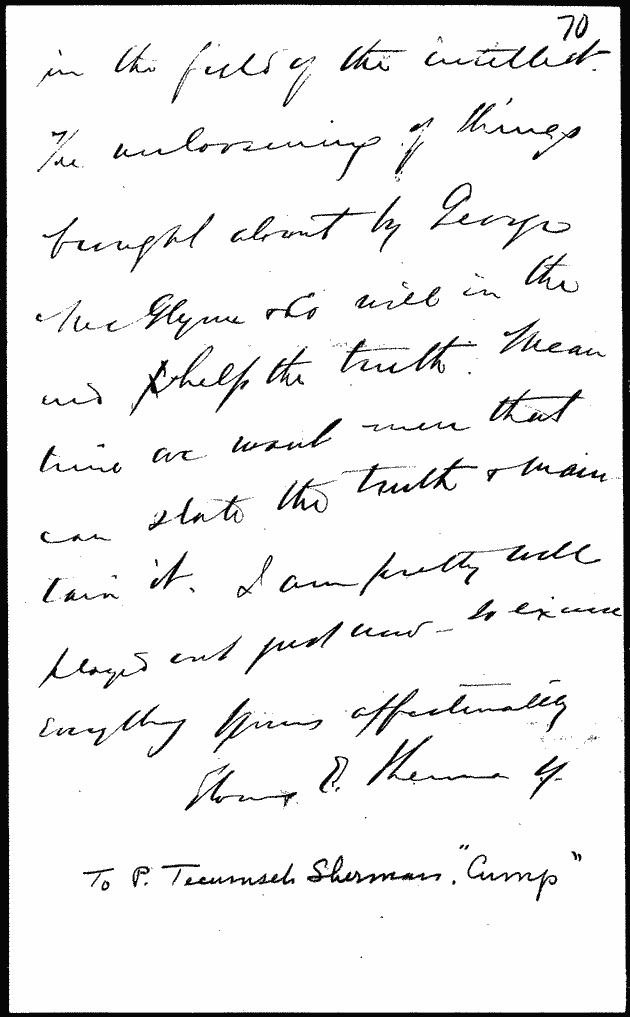 70
in the field of the intellect.
The unloosening of things
brought about by George
McGlynn & Co will in the
end help the truth. Mean
time we want men that
can state the truth & main
tain it. I am pretty well
played out just now – So excuse
Everything Yours affectionately
Thomas E. Sherman
To P. Tecumseh Sherman. "Cump"